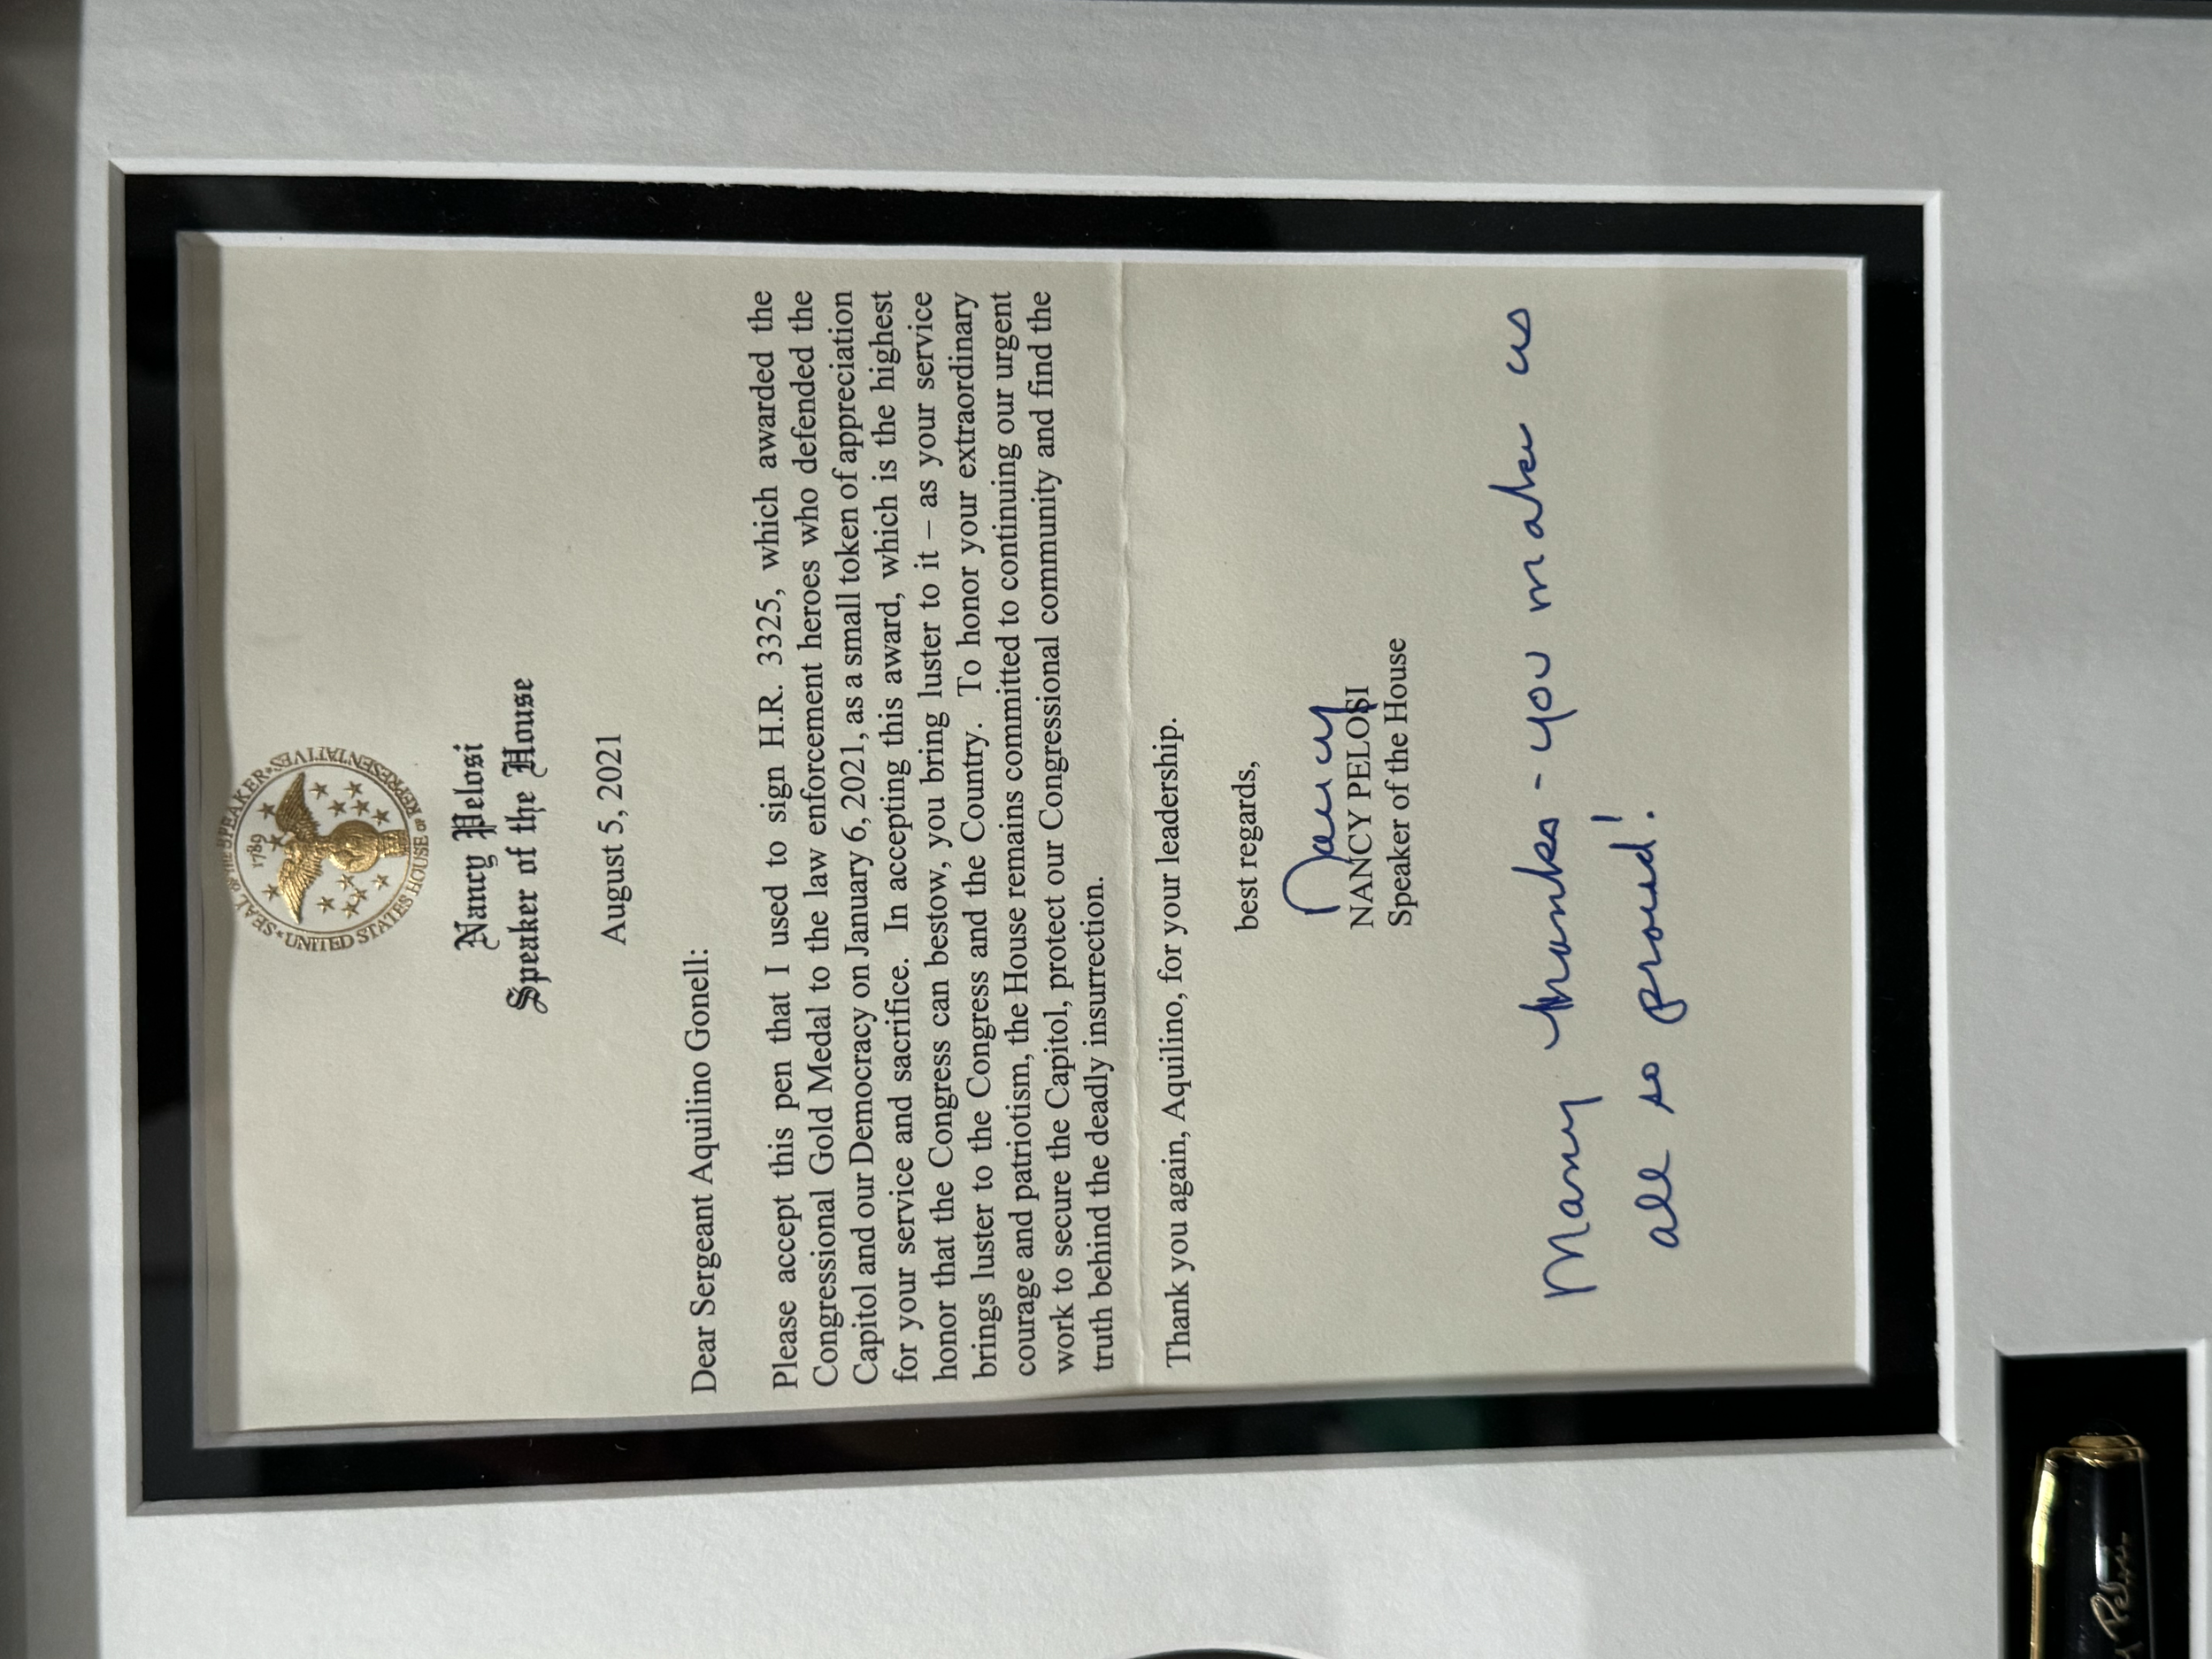 SEAL OF THE SPEAKER
1789
UNITED STATES HOUSE OF REPRESENTATIVES
Nancy Pelosi
Speaker of the House
August 5, 2021
Dear Sergeant Aquilino Gonell:
Please accept this pen that I used to sign H.R. 3325, which awarded the
Congressional Gold Medal to the law enforcement heroes who defended the
Capitol and our Democracy on January 6, 2021, as a small token of appreciation
for your service and sacrifice. In accepting this award, which is the highest
honor that the Congress can bestow, you bring luster to it – as your service
brings luster to the Congress and the Country. To honor your extraordinary
courage and patriotism, the House remains committed to continuing our urgent
work to secure the Capitol, protect our Congressional community and find the
truth behind the deadly insurrection.
Thank you again, Aquilino, for your leadership.
best regards,
Nancy
NANCY PELOSI
Speaker of the House
Many thanks - you make us
all so proud!
Pelosi